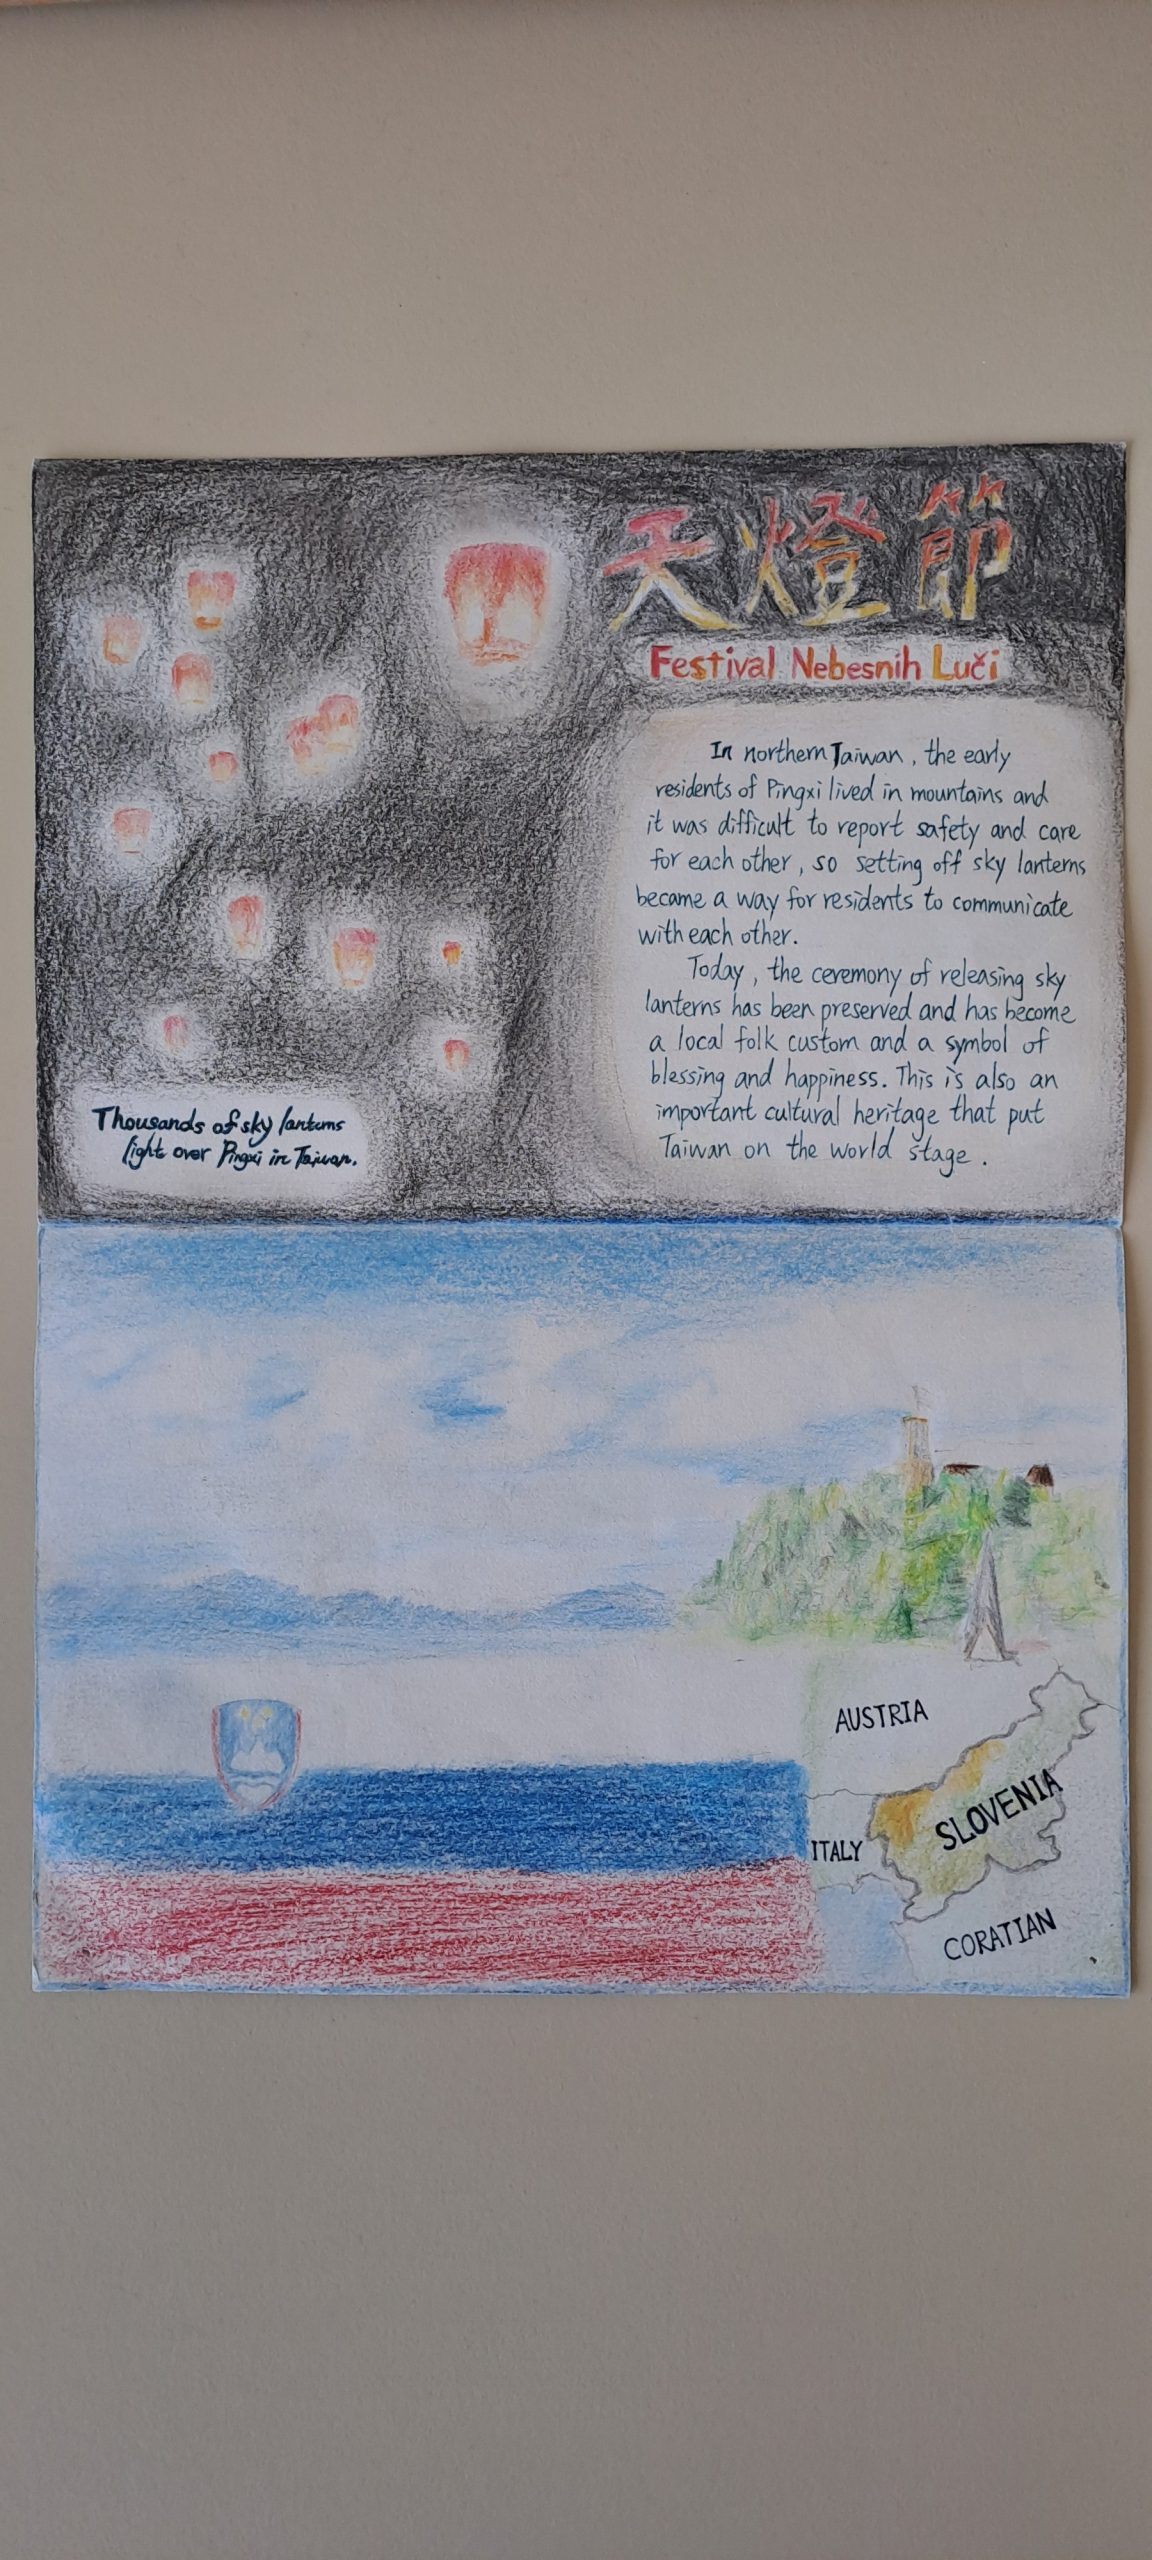 天燈節
Festival Nebesnih Luči
In northern Taiwan, the early
residents of Pingxi lived in mountains and
it was difficult to report safety and care
for each other, so setting off sky lanterns
became a way for residents to communicate
with each other.
Today, the ceremony of releasing sky
lanterns has been preserved and has become
a local folk custom and a symbol of
blessing and happiness. This is also an
important cultural heritage that put
Taiwan on the world stage.
Thousands of sky lanterns
light over Pingxi in Taiwan.
AUSTRIA
SLOVENIA
ITALY
CORATIAN